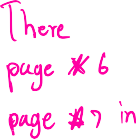 There
page # 6
page # 7 in